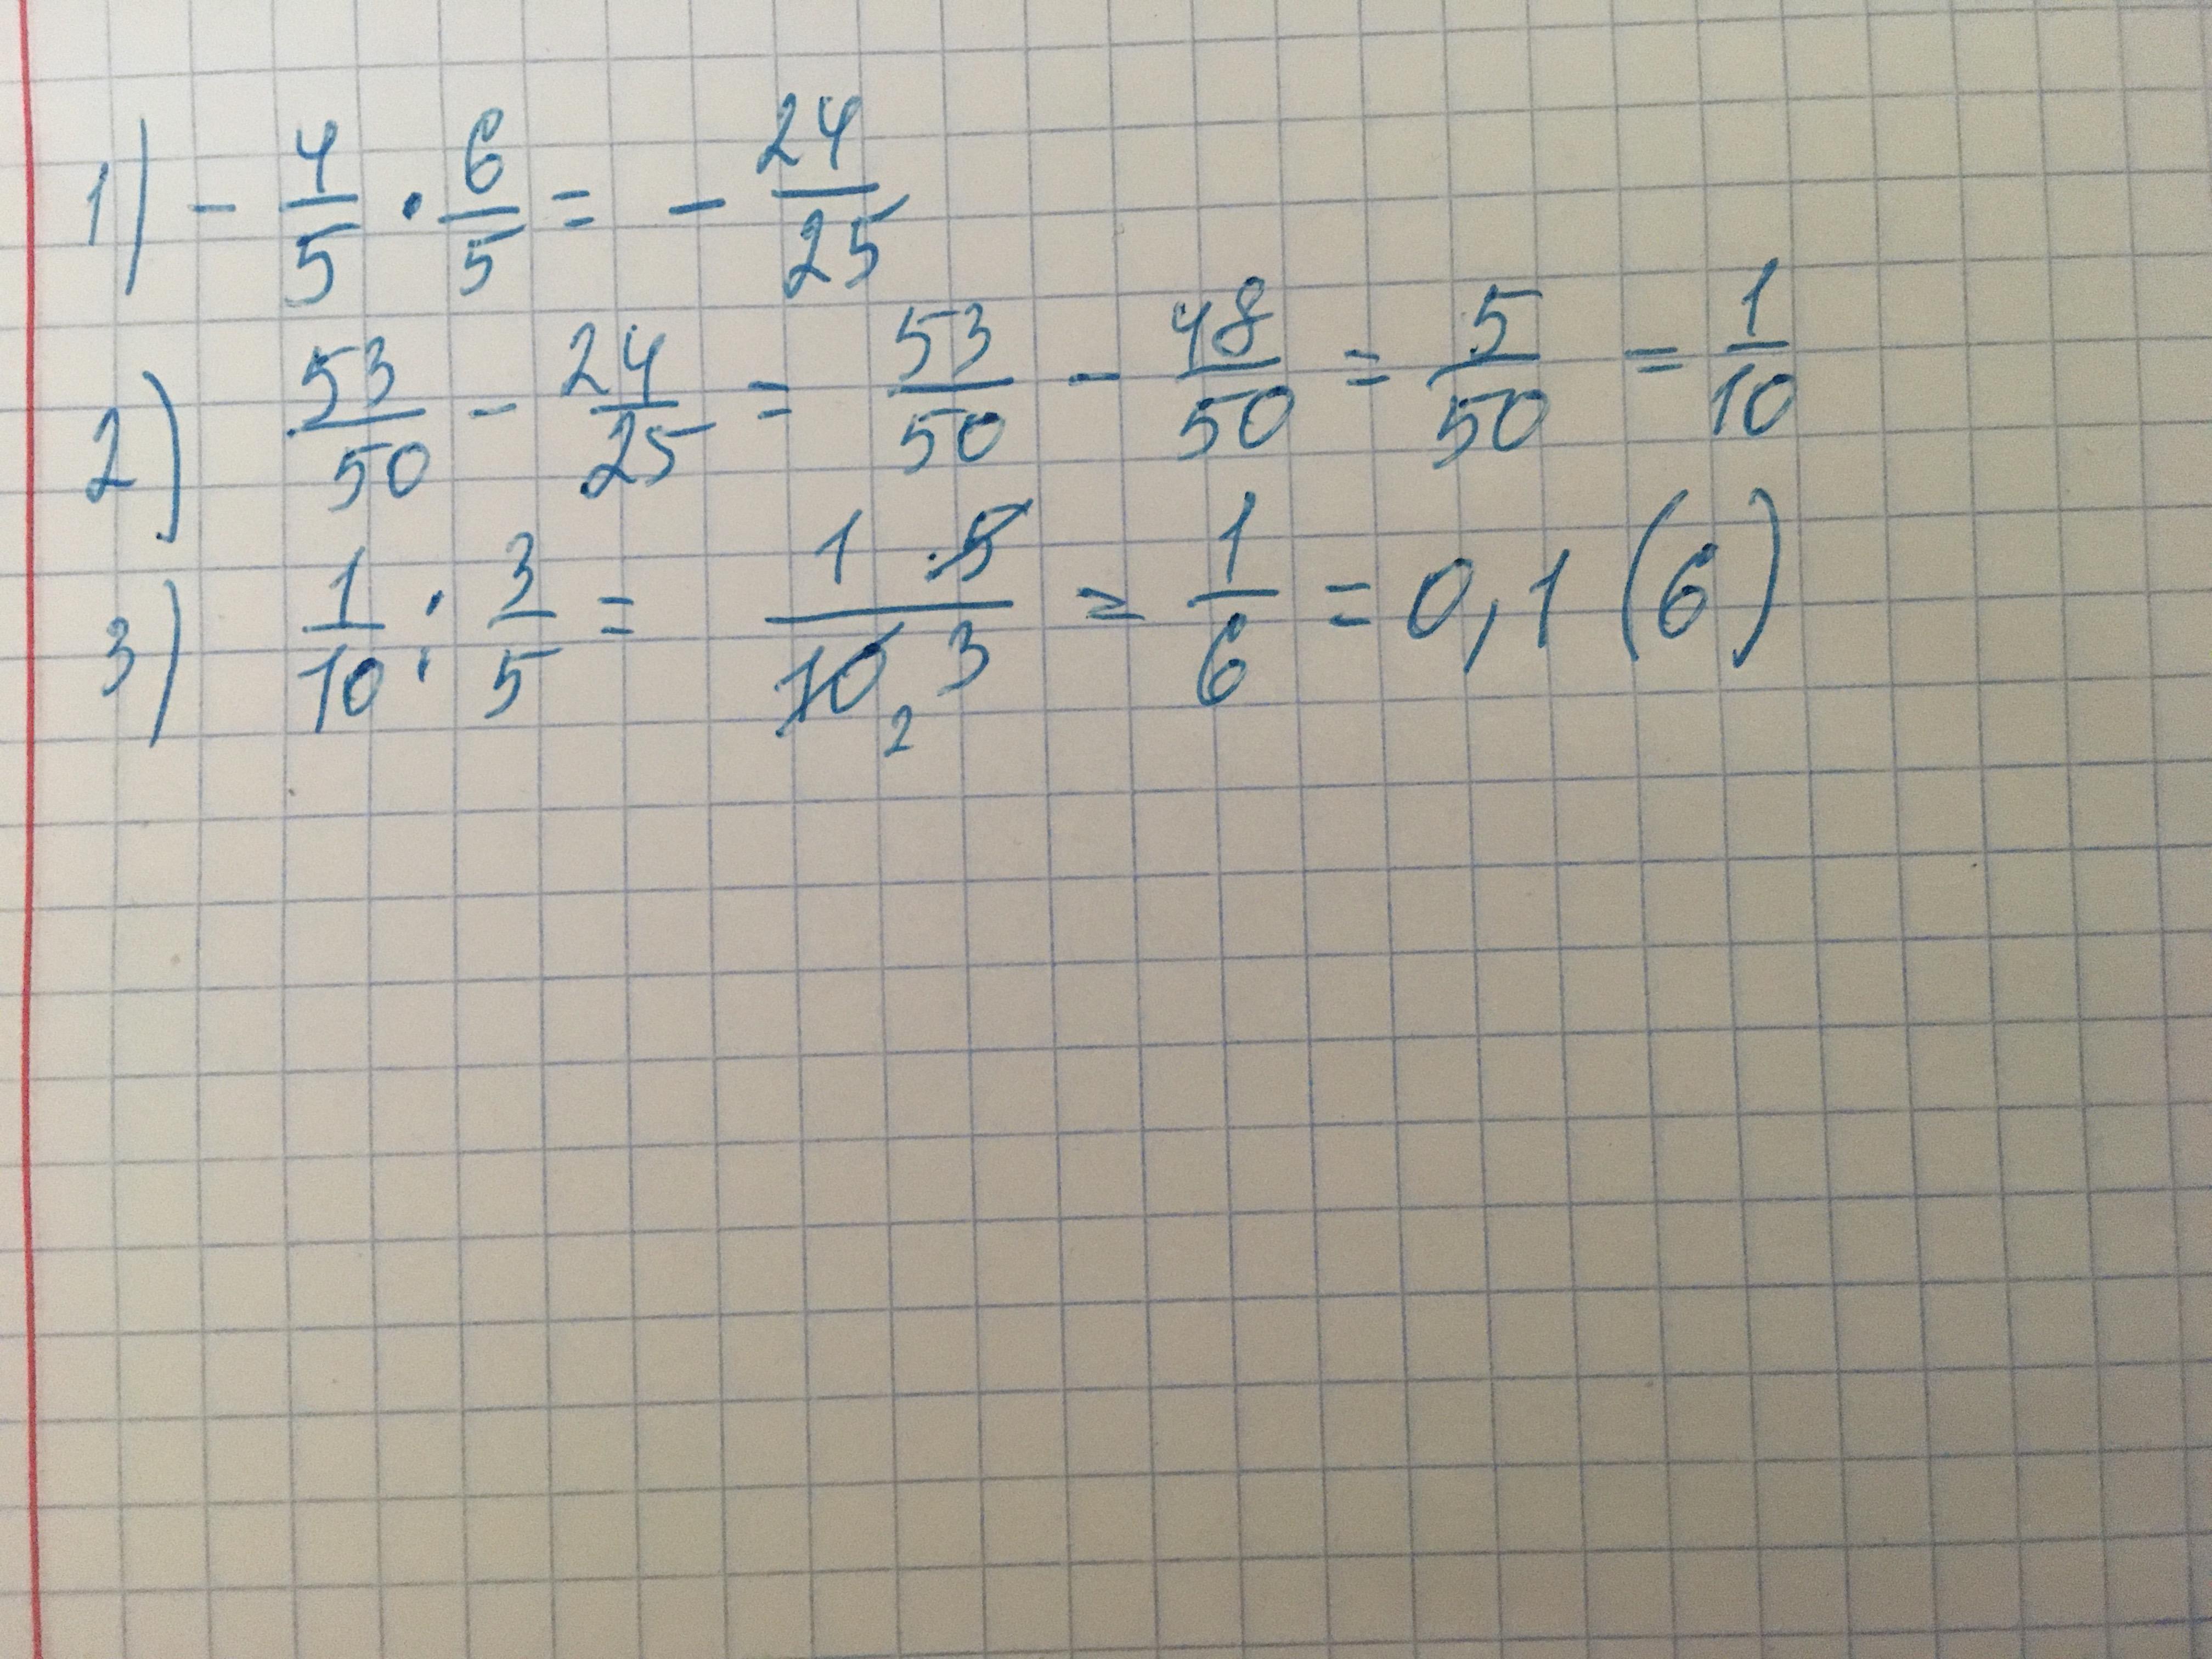 1) - 4/5 · 6/5 = - 24/25
2) 53/50 - 24/25 = 53/50 - 48/50 = 5/50 = 1/10
3) 1/10 : 3/5 = 1 · 5/10 2 3 = 1/6 = 0,1(6)